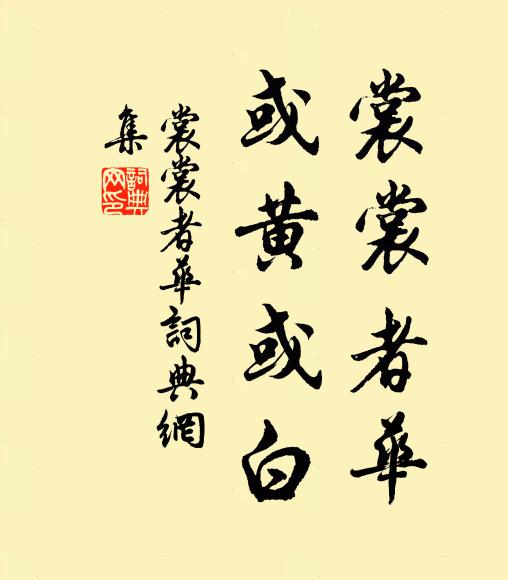 裳裳者華
或黃或白
裳裳者華詞典網
集
詞典
网印